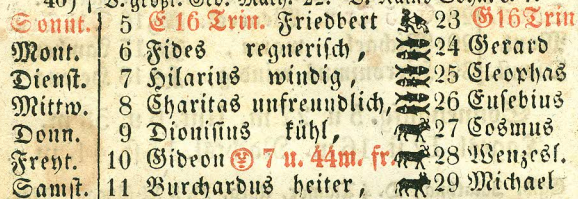 Sonnt. 5 E 16 Trin. Friedbert 23 G16Trin
Mont. 6 Fides regnerisch, 24 Gerard
Dienst. 7 Hilarius windig, 25 Cleophas
Mittw. 8 Charitas unfreundlich, 26 Eusebius
Donn. 9 Dionisius kühl, 27 Cosmus
Freyt. 10 Gideon 7 u. 44m. fr. 28 Wenzesl.
Samst. 11 Burchardus heiter, 29 Michael